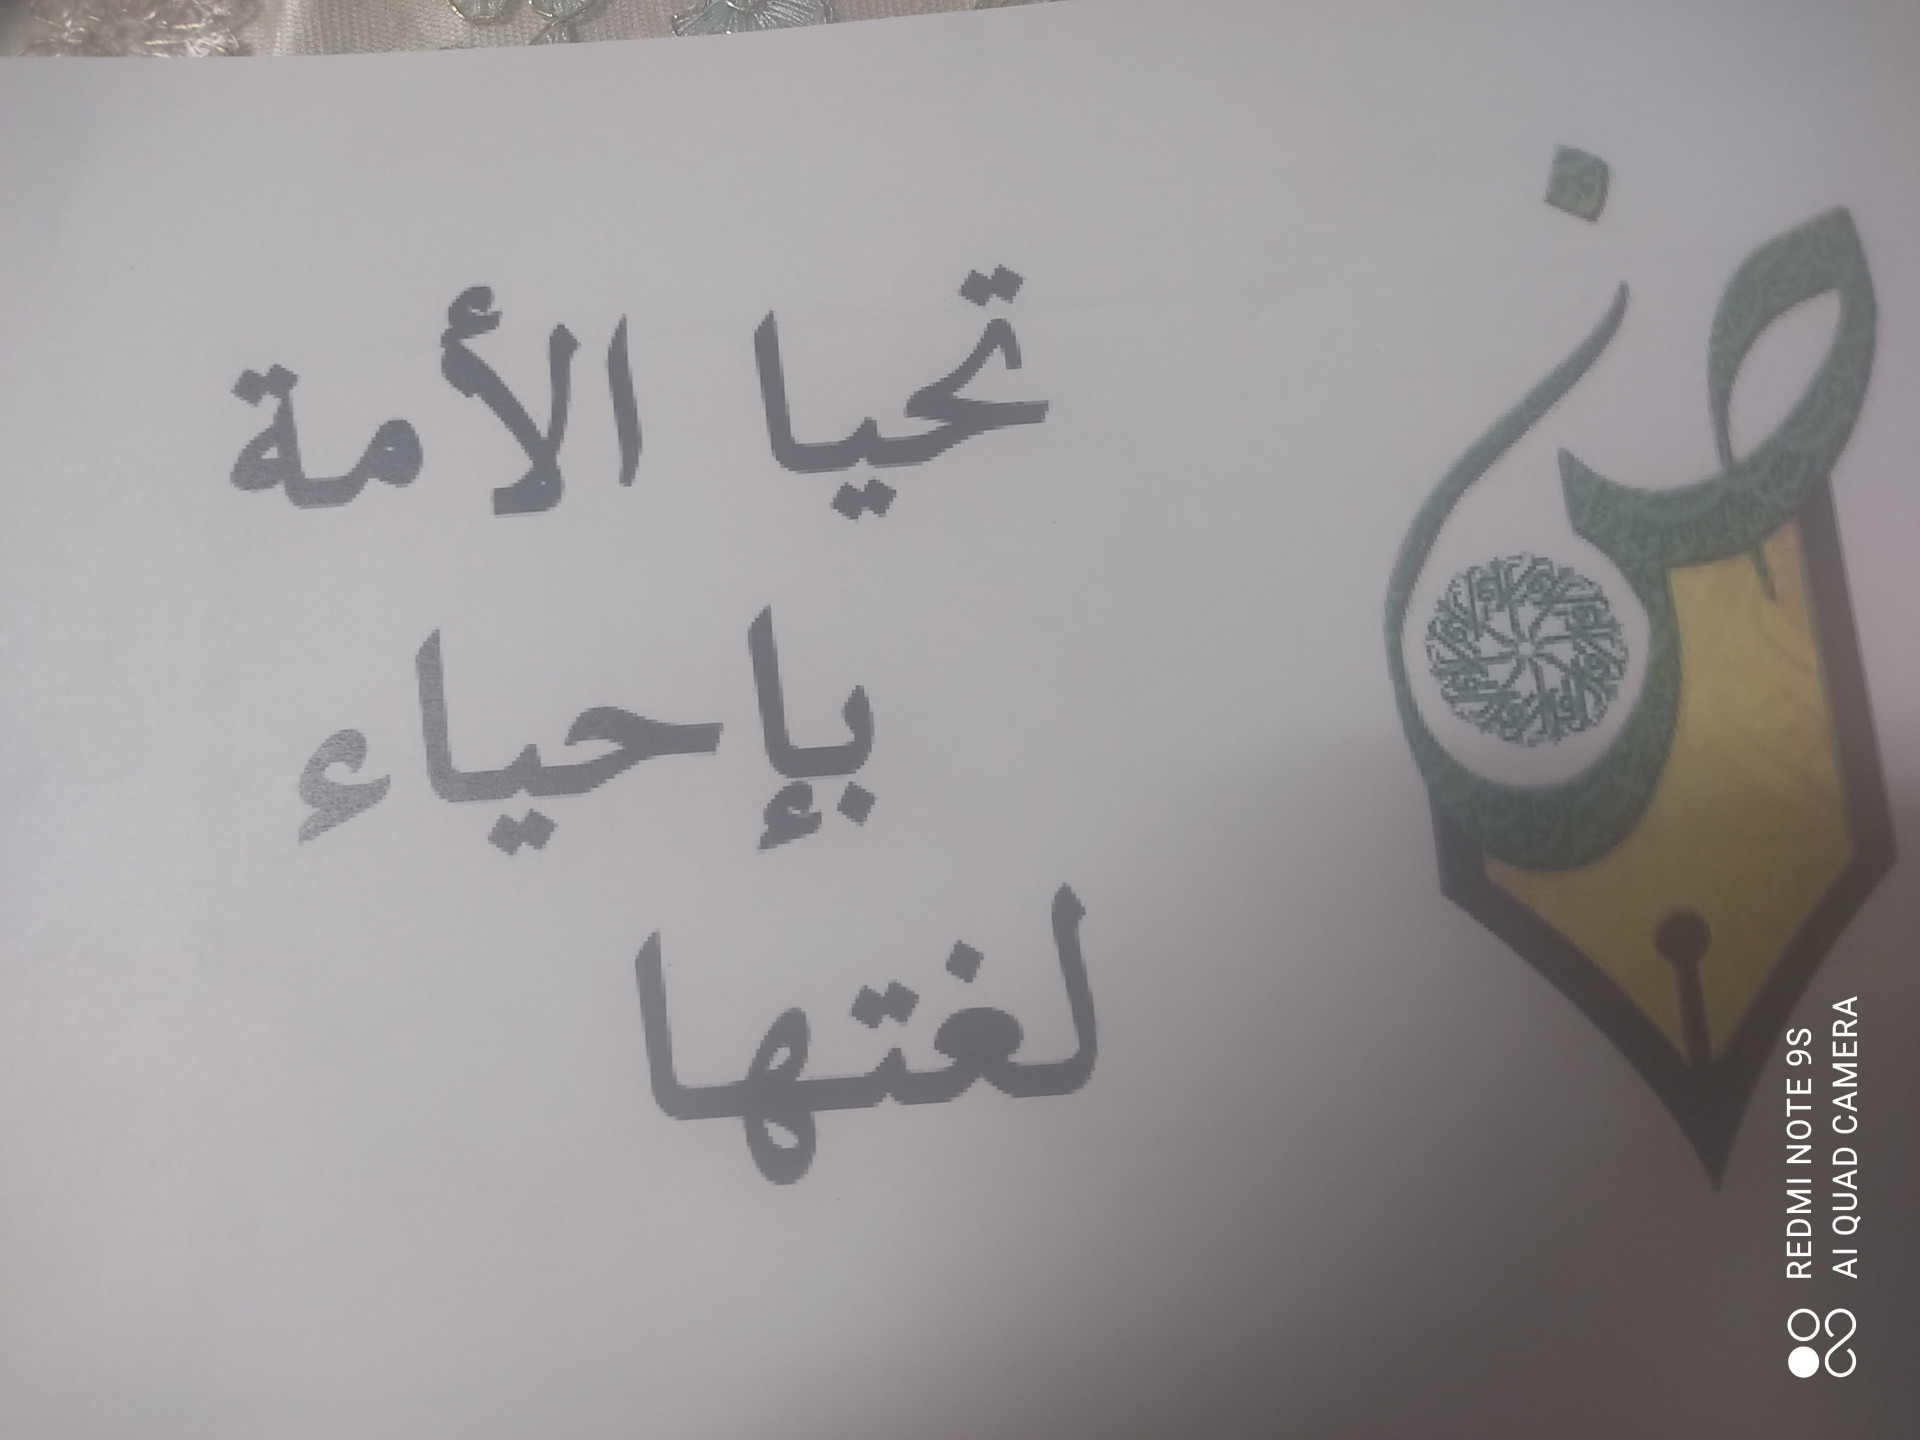 تحيا الأمة
بإحياء
لغتها
ض
REDMI NOTE 9S
AI QUAD CAMERA